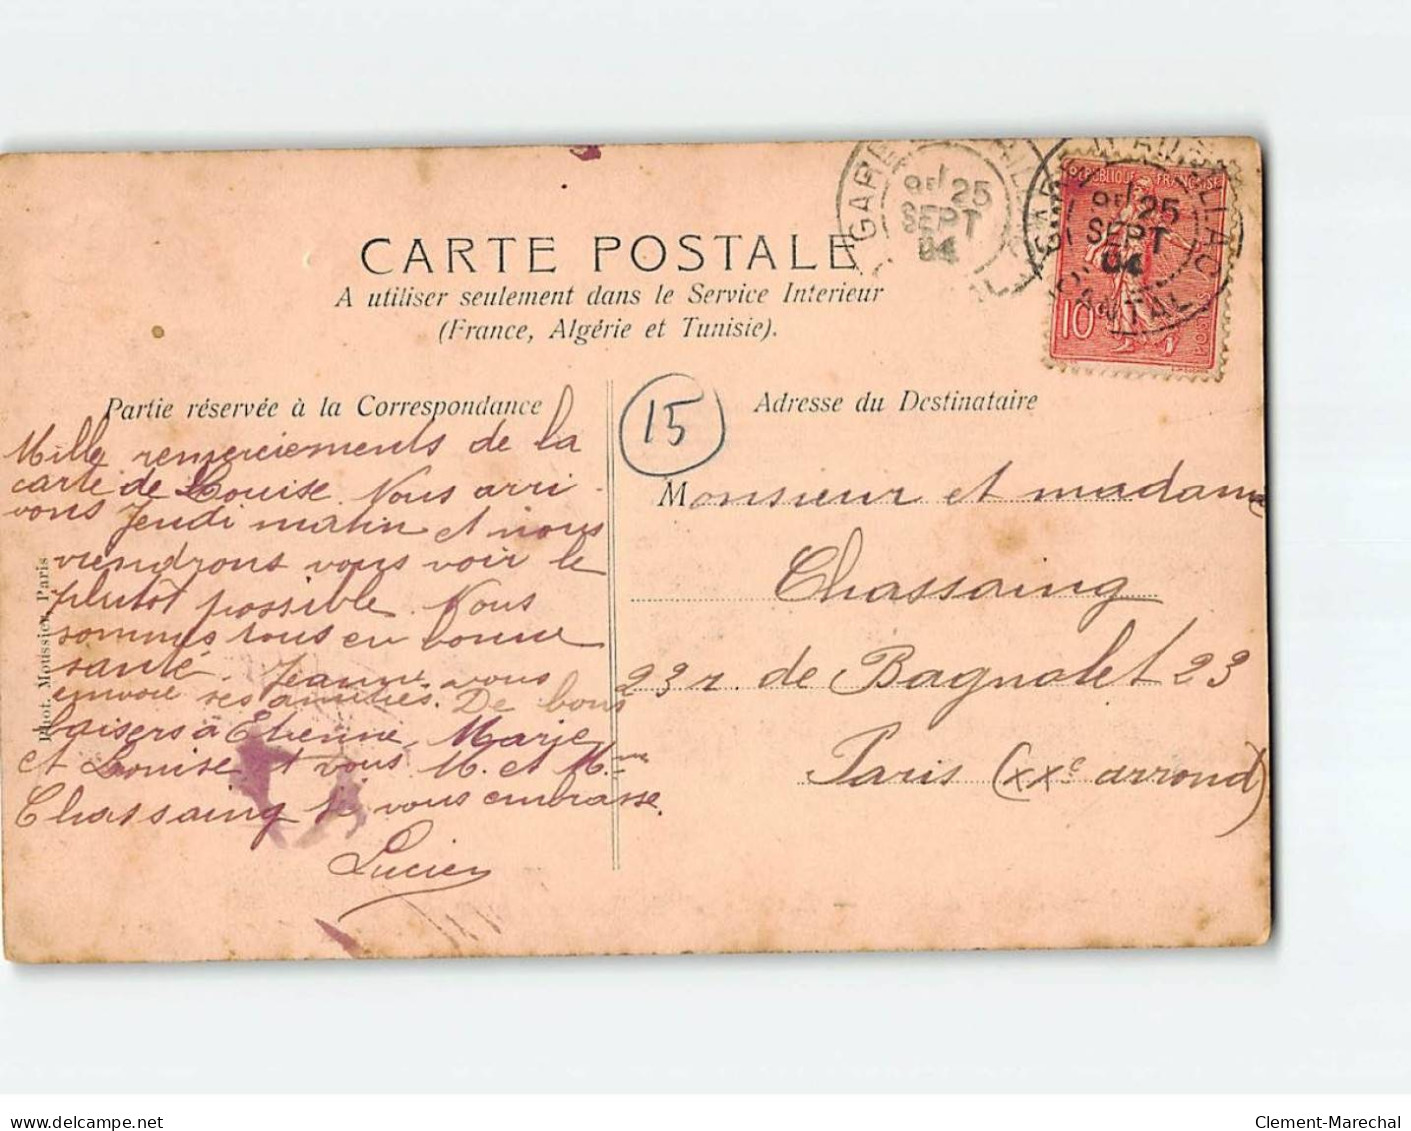 CARTE POSTALE
A utiliser seulement dans le Service Interieur
(France, Algérie et Tunisie).
Partie réservée à la Correspondance
Mille remerciements de la
carte de Louise. Nous arri-
vons Jeudi matin et nous
viendrons vous voir le
plutôt possible. Nous
sommes tous en bonne
santé. Jeanne vous
envoie ses amitiés. De bons
baisers à Etienne, Marie
et Louise et vous M. et Mme
Chassaing je vous embrasse.
Lucien
Phot. Moussier, Paris
15
Adresse du Destinataire
Monsieur et madame
Chassaing
23 r. de Bagnolet 23
Paris (XXe arrond)
GARE
25
SEPT
04
REPUBLIQUE FRANÇAISE
10
GARE D'AURILLAC
25
SEPT
04
CANTAL
delcampe.net
Clement-Marechal